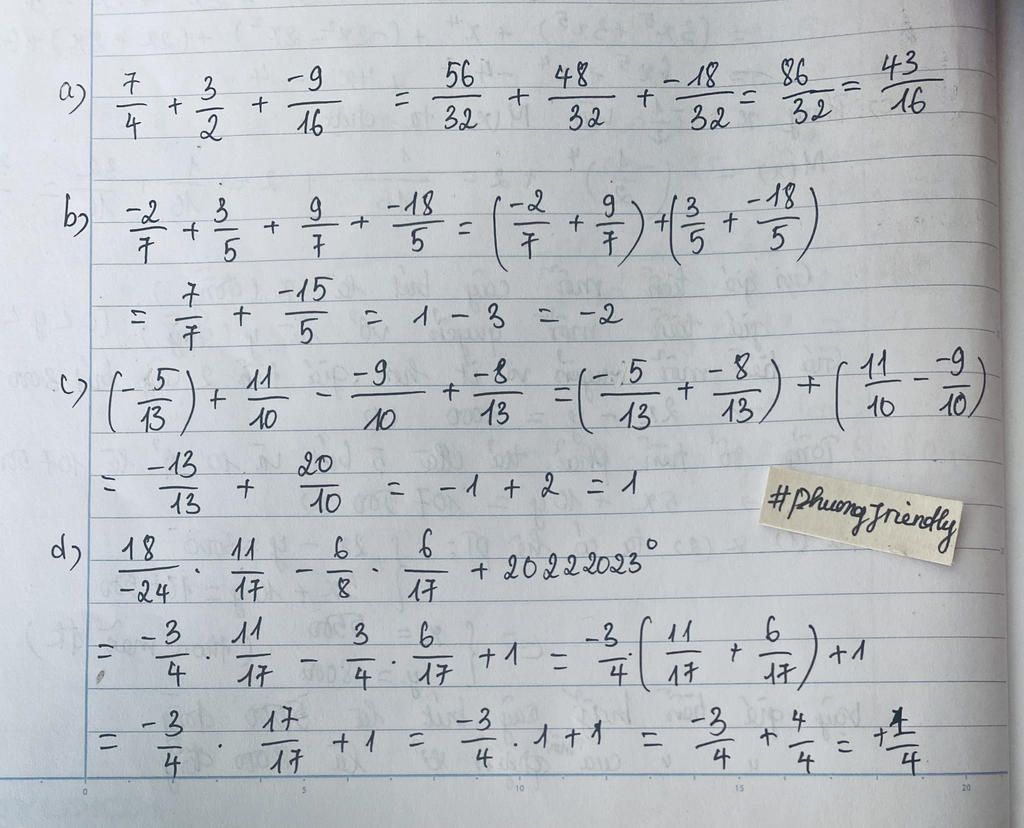 a) 7/4 + 3/2 + -9/16 = 56/32 + 48/32 + -18/32 = 86/32 = 43/16
b) -2/7 + 3/5 + 9/7 + -18/5 = (-2/7 + 9/7) + (3/5 + -18/5)
= 7/7 + -15/5 = 1 - 3 = -2
c) (-5/13) + 11/10 - -9/10 + -8/13 = (-5/13 + -8/13) + (11/10 - -9/10)
= -13/13 + 20/10 = -1 + 2 = 1
#phuongfriendly
d) 18/-24 . 11/17 - 6/8 . 6/17 + 20222023⁰
= -3/4 . 11/17 - 3/4 . 6/17 + 1 = -3/4 . (11/17 + 6/17) + 1
= -3/4 . 17/17 + 1 = -3/4 . 1 + 1 = -3/4 + 4/4 = +1/4
0 5 10 15 20